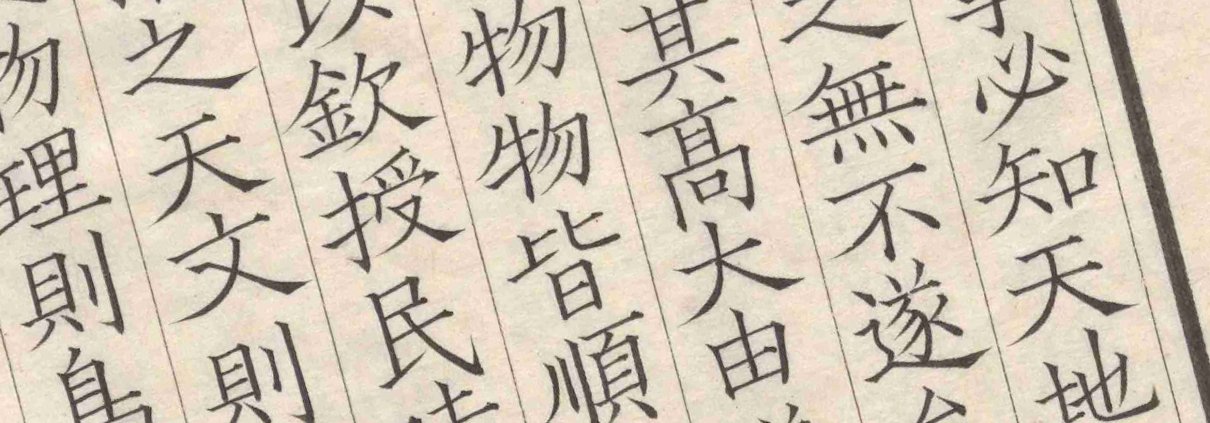 必知天地
無不遂
其髙大由
物物皆順
欽授民
之天文則
物理則